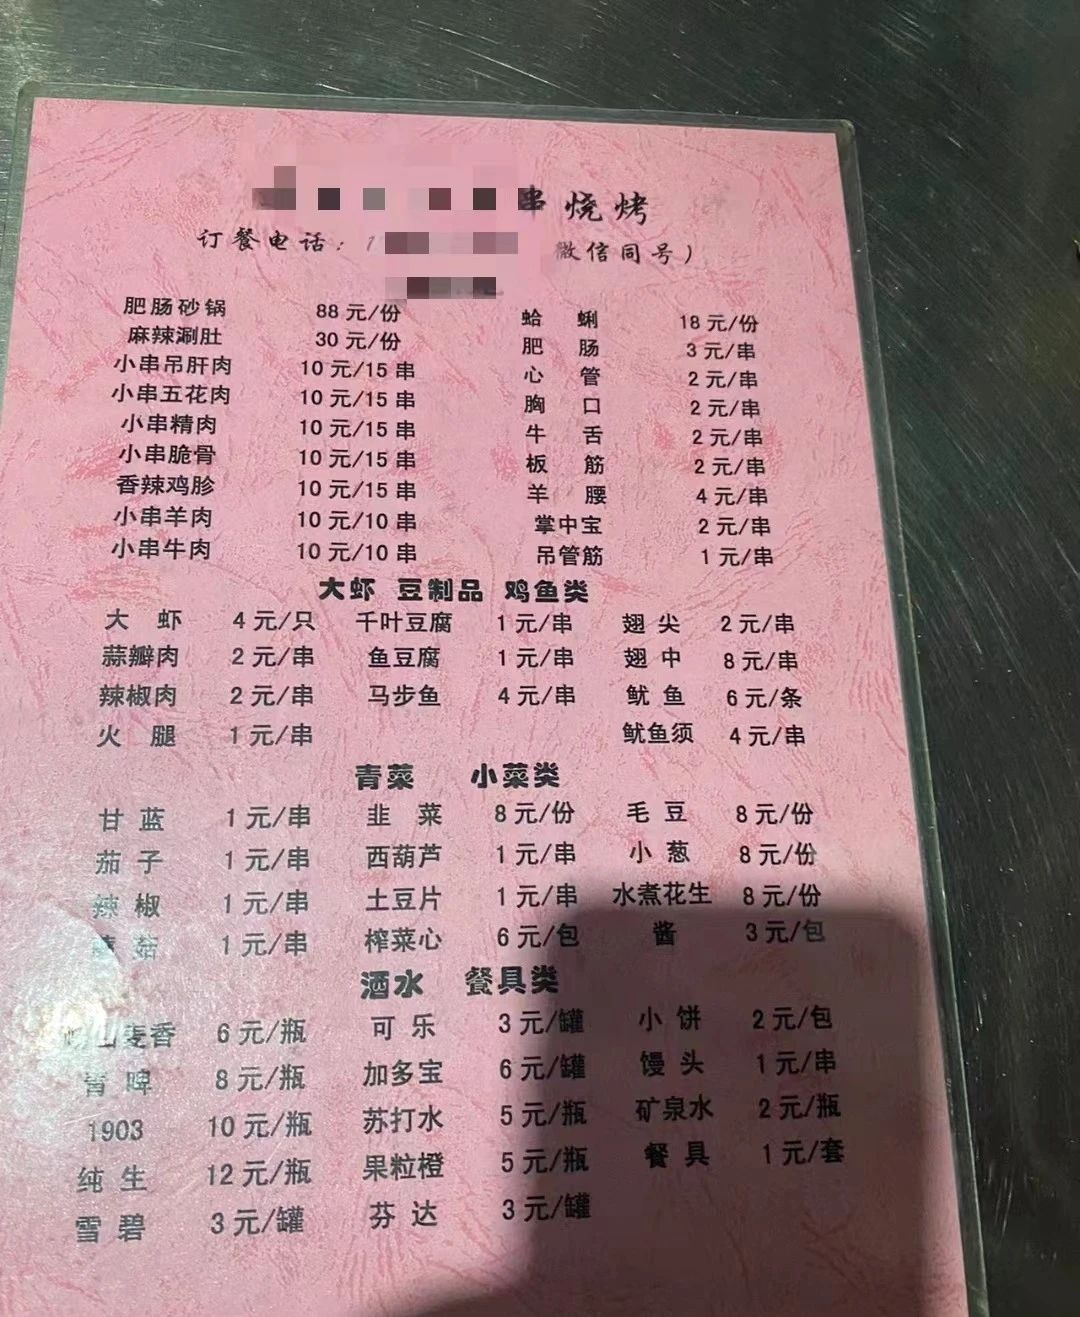 串烧烤
订餐电话：1 微信同号）
肥肠砂锅 88元/份 蛤蜊 18元/份
麻辣涮肚 30元/份 肥肠 3元/串
小串吊肝肉 10元/15串 心管 2元/串
小串五花肉 10元/15串 胸口 2元/串
小串精肉 10元/15串 牛舌 2元/串
小串脆骨 10元/15串 板筋 2元/串
香辣鸡胗 10元/15串 羊腰 4元/串
小串羊肉 10元/10串 掌中宝 2元/串
小串牛肉 10元/10串 吊管筋 1元/串
大虾 豆制品 鸡鱼类
大虾 4元/只 千叶豆腐 1元/串 翅尖 2元/串
蒜瓣肉 2元/串 鱼豆腐 1元/串 翅中 8元/串
辣椒肉 2元/串 马步鱼 4元/串 鱿鱼 6元/条
火腿 1元/串 鱿鱼须 4元/串
青菜 小菜类
甘蓝 1元/串 韭菜 8元/份 毛豆 8元/份
茄子 1元/串 西葫芦 1元/串 小葱 8元/份
辣椒 1元/串 土豆片 1元/串 水煮花生 8元/份
蘑菇 1元/串 榨菜心 6元/包 酱 3元/包
酒水 餐具类
崂山麦香 6元/瓶 可乐 3元/罐 小饼 2元/包
青啤 8元/瓶 加多宝 6元/罐 馒头 1元/串
1903 10元/瓶 苏打水 5元/瓶 矿泉水 2元/瓶
纯生 12元/瓶 果粒橙 5元/瓶 餐具 1元/套
雪碧 3元/罐 芬达 3元/罐